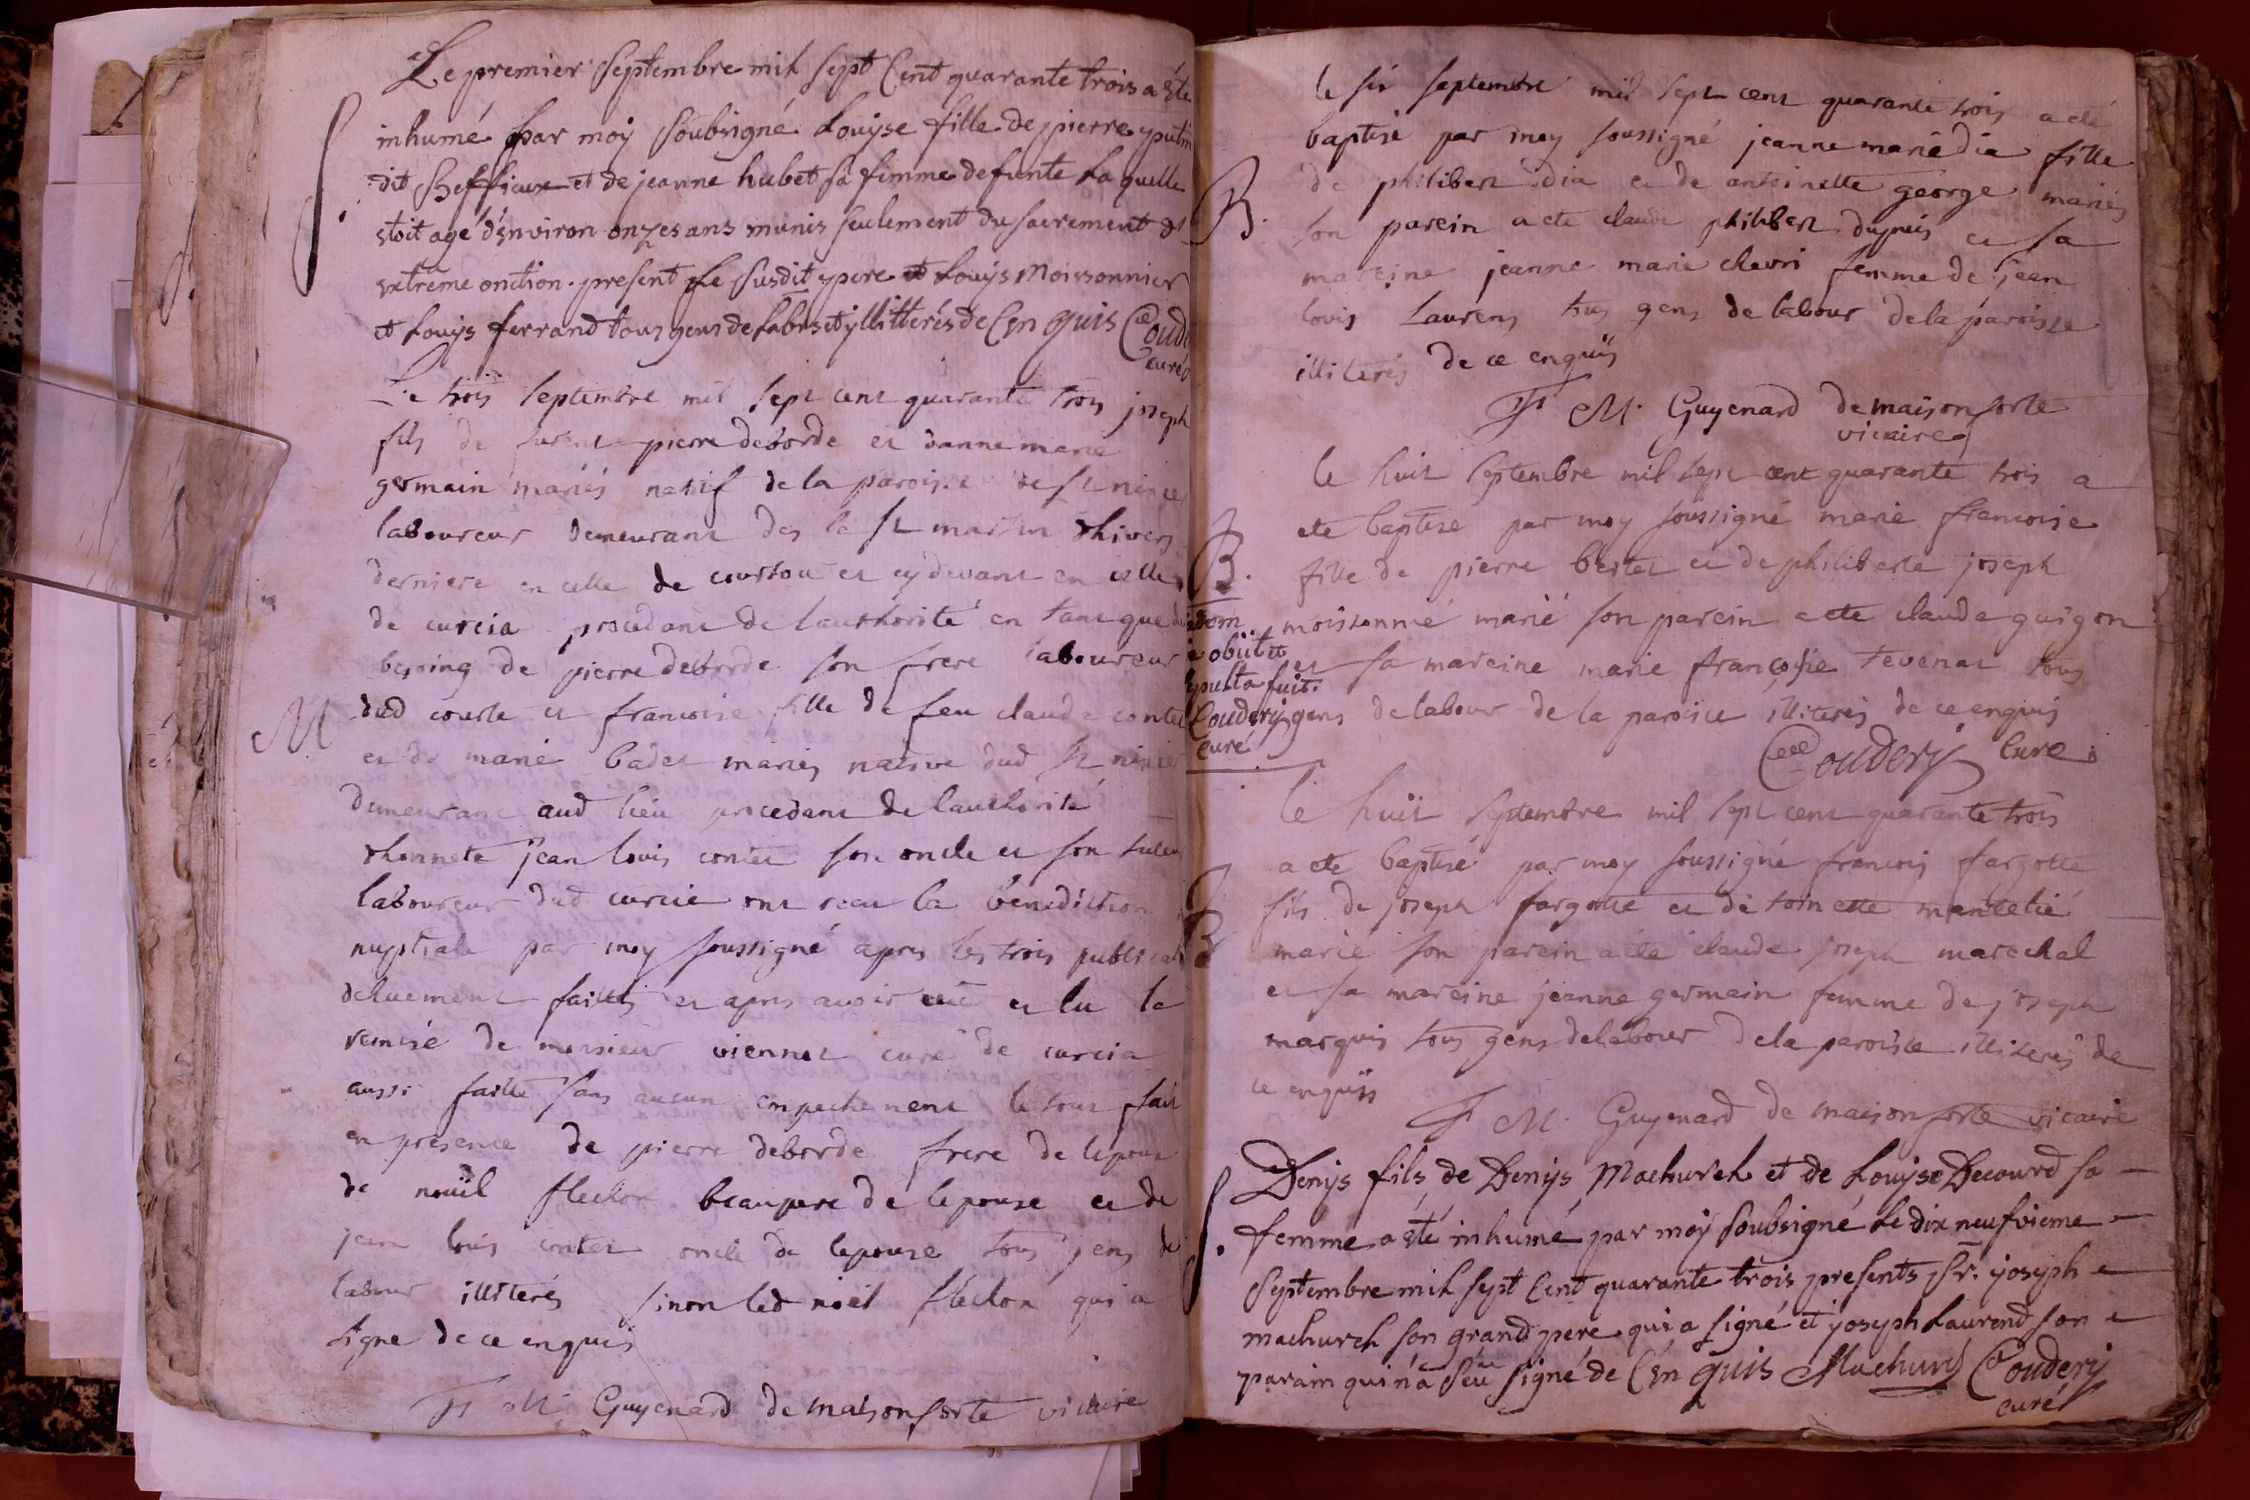 Le premier Septembre mil sept Cent quarante trois a été
inhumé par moÿ Soubsigné Louÿse fille de pierre
dit et de jeanne hubet sa fimme defunte La quelle
etoit agé d'Environ onzes ans munis seulement du sacrement d'
extrême onction. present Le Susdit pere et Louÿs Moissonnier
et Louÿs ferrand tous gens de Labeur et ÿllitterés de Cen quis Coud
curé
Le trois Septembre mil sept cent quarante trois joseph
fils de pierre deborde et danne marie
germain mariés natif de la paroisse de st nizier
laboureur demeurant des la st martin dhivers
derniere en celle de courtou et cy devant en celle
de curcia procedant de lauthorité en tant que de
besoing de pierre deborde son frere laboureur
M
dud et francoise fille de feu claude contet
et de marie badet mariés native dud st nizier
demeurant aud lieu procedant de lauthorité
dhonnete jean louis contet son oncle et son tuteur
laboureur dud curcie ont recu la benediction
nuptiale par moy soussigné apres les trois publicat
deluement faittes et apres avoir et lu la
remise de monsieur viennet curé de curcia
aussi faitte sans aucun empechement le tout fait
en presence de pierre deborde frere de lepoux
de nouël flechon beaupere de lepouse et de
jean louis contet oncle de lepouse tous gens de
labour illiterés sinon led noël fléchon qui a
signe de ce enquis
F M. Guyenard de maisonforte vicaire
le six septembre mil sept cent quarante trois a eté
baptisé par moy soussigné jeanne marie dia fille
B.
de philibert dia et de antoinette george mariés
son parein a eté claude philibert dupuis et sa
mareine jeanne marie chevri femme de jean
louis Laurens tous gens de labour de la paroisse
illiterés de ce enquis
F M. Guyenard de maisonforte
vicaire
le huit septembre mil sept cent quarante trois a
ete baptisé par moy soussigné marie francoise
B.
fille de pierre bertet et de philiberte joseph
moissonnié marié son parein a eté claude guigon
obiit et
et sa mareine marie françoise tevenat tous
sepulta fuit.
Couderÿ
curé
gens de labour de la paroisse illiterés de ce enquis
Couderÿ Curé
le huit septembre mil sept cent quarante trois
a eté baptisé par moy soussigné francois fargotte
B
fils de joseph fargotte et de toinette mantelié
marié son parein a eté claude joseph marechal
et sa mareine jeanne germain femme de joseph
marquis tous gens de labour de la paroisse illiterés de
ce enquis
F M. Guyenard de maisonforte vicaire
Denÿs fils de Denÿs Machurch et de Louÿse Decourd sa
femme a été inhumé par moÿ Soubsigné Le dix neufvieme
Septembre mil sept Cent quarante trois presents Sr. joseph
machurch son grand pere qui a signé et joseph Laurend son
parain qui n'a Sçu signé de Cen quis Machurch Couderÿ
curé